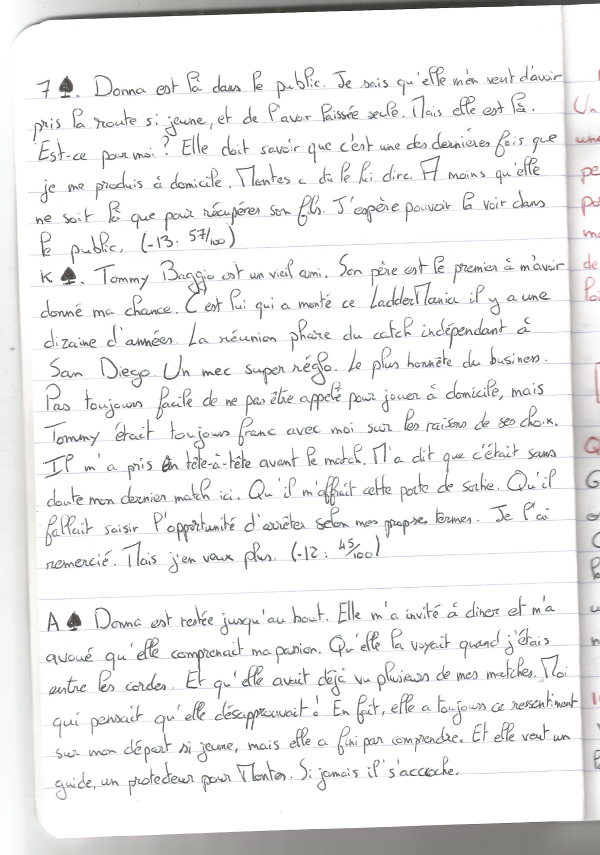 7 ♠. Donna est là dans le public. Je sais qu'elle m'en veut d'avoir
pris la route si jeune, et de l'avoir laissée seule. Mais elle est là.
Est-ce pour moi ? Elle doit savoir que c'est une des dernières fois que
je me produis à domicile. Montes a dû le lui dire. A moins qu'elle
ne soit là que pour récupérer son fils. J'espère pouvoir la voir dans
le public. (-13: 57/100)
K ♠. Tommy Baggio est un vieil ami. Son père est le premier à m'avoir
donné ma chance. C'est lui qui a monté ce LadderMania il y a une
dizaine d'années. La réunion phare du catch indépendant à
San Diego. Un mec super réglo. Le plus honnête du business.
Pas toujours facile de ne pas être appelé pour jouer à domicile, mais
Tommy était toujours franc avec moi sur les raisons de ses choix.
Il m'a pris en tête-à-tête avant le match. M'a dit que c'était sans
doute mon dernier match ici. Qu'il m'offrait cette porte de sortie. Qu'il
fallait saisir l'opportunité d'arrêter selon mes propres termes. Je l'ai
remercié. Mais j'en veux plus. (-12: 45/100)
A ♠ Donna est restée jusqu'au bout. Elle m'a invité à diner et m'a
avoué qu'elle comprenait ma passion. Qu'elle la voyait quand j'étais
entre les cordes. Et qu'elle avait déjà vu plusieurs de mes matches. Moi
qui pensait qu'elle désapprouvait ! En fait, elle a toujours ce ressentiment
sur mon départ si jeune, mais elle a fini par comprendre. Et elle veut un
guide, un protecteur pour Montes. Si jamais il s'accroche.